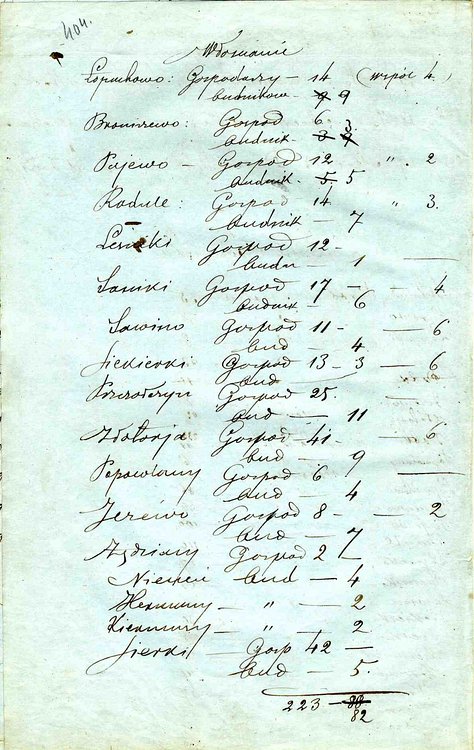 404.
Włościanie
Łopuchowo: Gospodarzy – 14 (wspól 4.)
budnikow – 9 9
Broniszewo: Gospod 6.
budnik – 3 7 3.
Pajewo – Gospod 12 " . 2
budnik – 5. 5
Radule : Gospod 14 " 3.
budnik – 7
Leśniki Gospod 12 –
budn – 1 —
Saniki Gospod 17 – – 4
budnik – 6
Sawino Gospod 11 – — 6
bud – 4
Siekierki Gospod 13 – 3 — 6
bud —
Gospod 25. —
bud — 11
Złotorja Gospod – 41 – — 6
bud – 9
Popowlany Gospod 6
bud – 4
Jeziwo Gospod 8 – — 2
bud – 7
Gospod 2 —
Niemcu bud – 4
Hermany – " – 2
Kiermuny – " – 2
Sierki – Gosp 42 —
bud – 5.
223 – 80
82